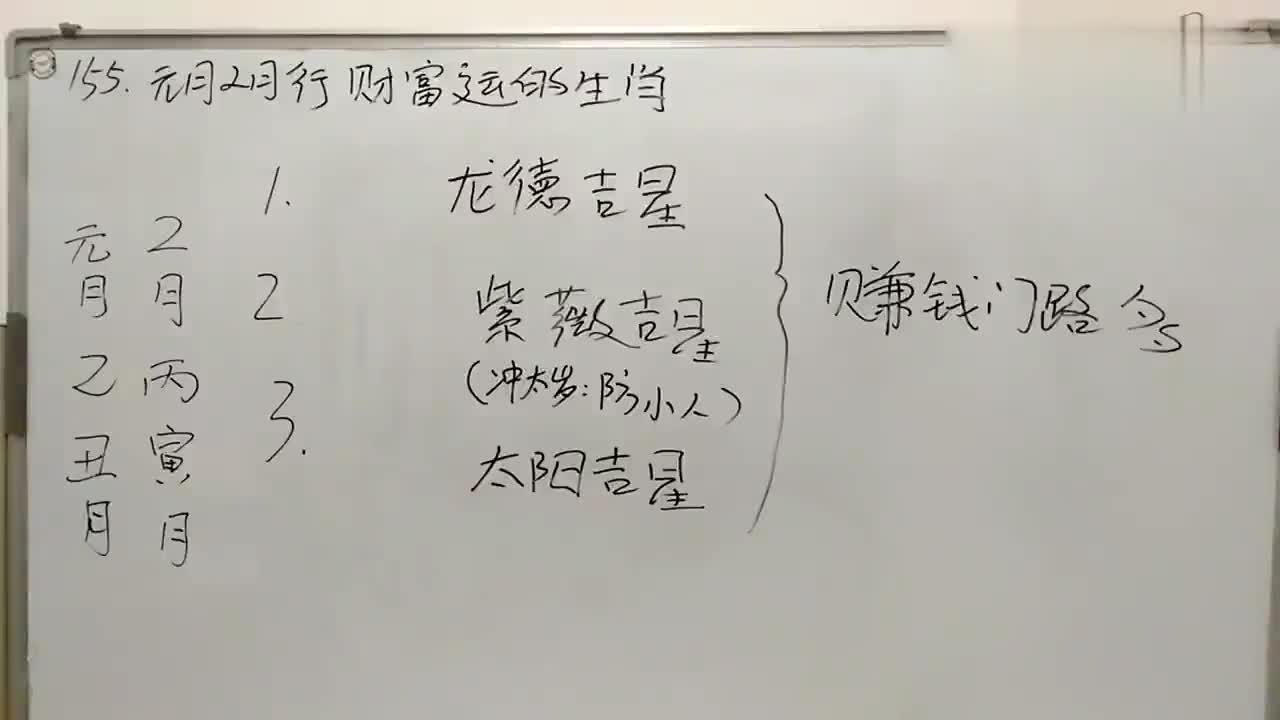 155. 元月2月行财富运的生肖
元月乙丑月
2月丙寅月
1. 龙德吉星
2 紫薇吉星
(冲太岁:防小人)
3. 太阳吉星
赚钱门路多